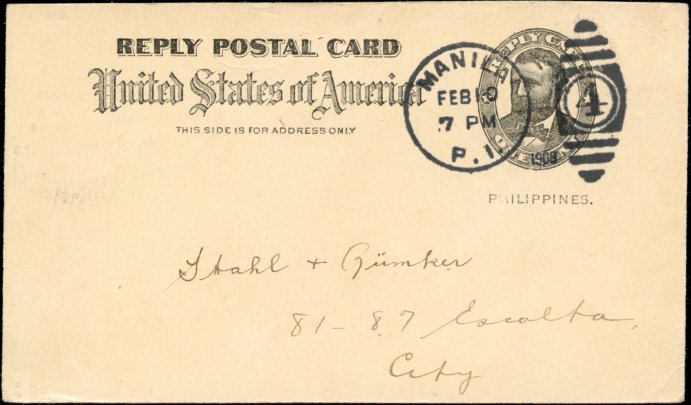 REPLY POSTAL CARD
United States of America
THIS SIDE IS FOR ADDRESS ONLY
MANILA
FEB 10
7 PM
P. I.
1903
4
REPLY CARD
ONE CENT
PHILIPPINES.
Stahl + Rümker
81-87 Escolta,
City